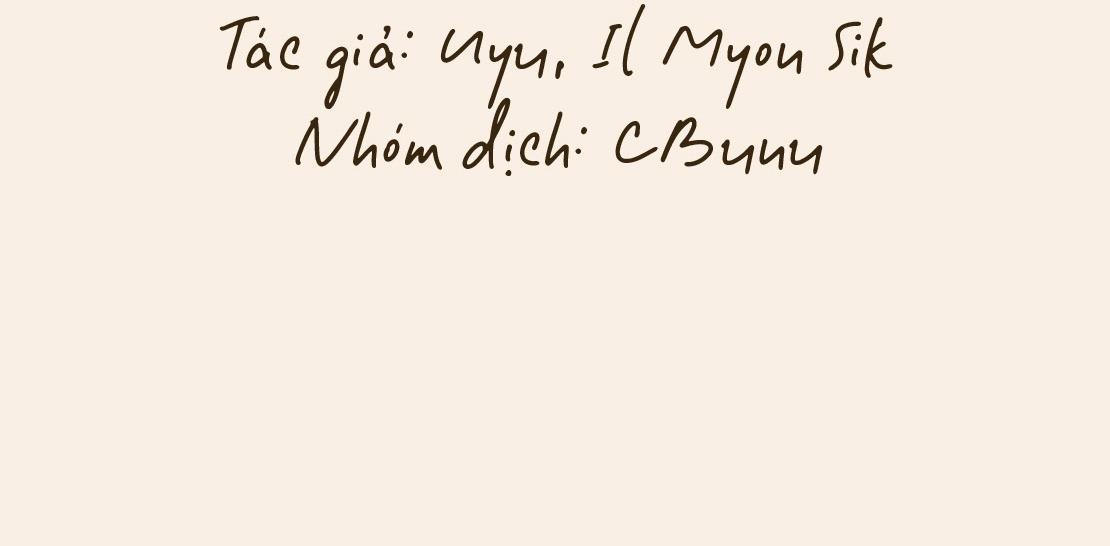 Tác giả: Uyu, Il Myou Sik
Nhóm dịch: CBunu